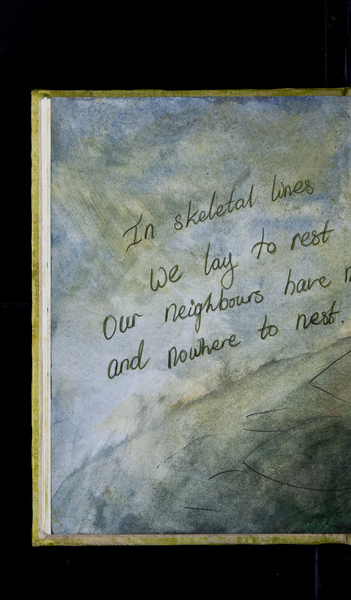 In skeletal lines
We lay to rest
Our neighbours have
and nowhere to nest.